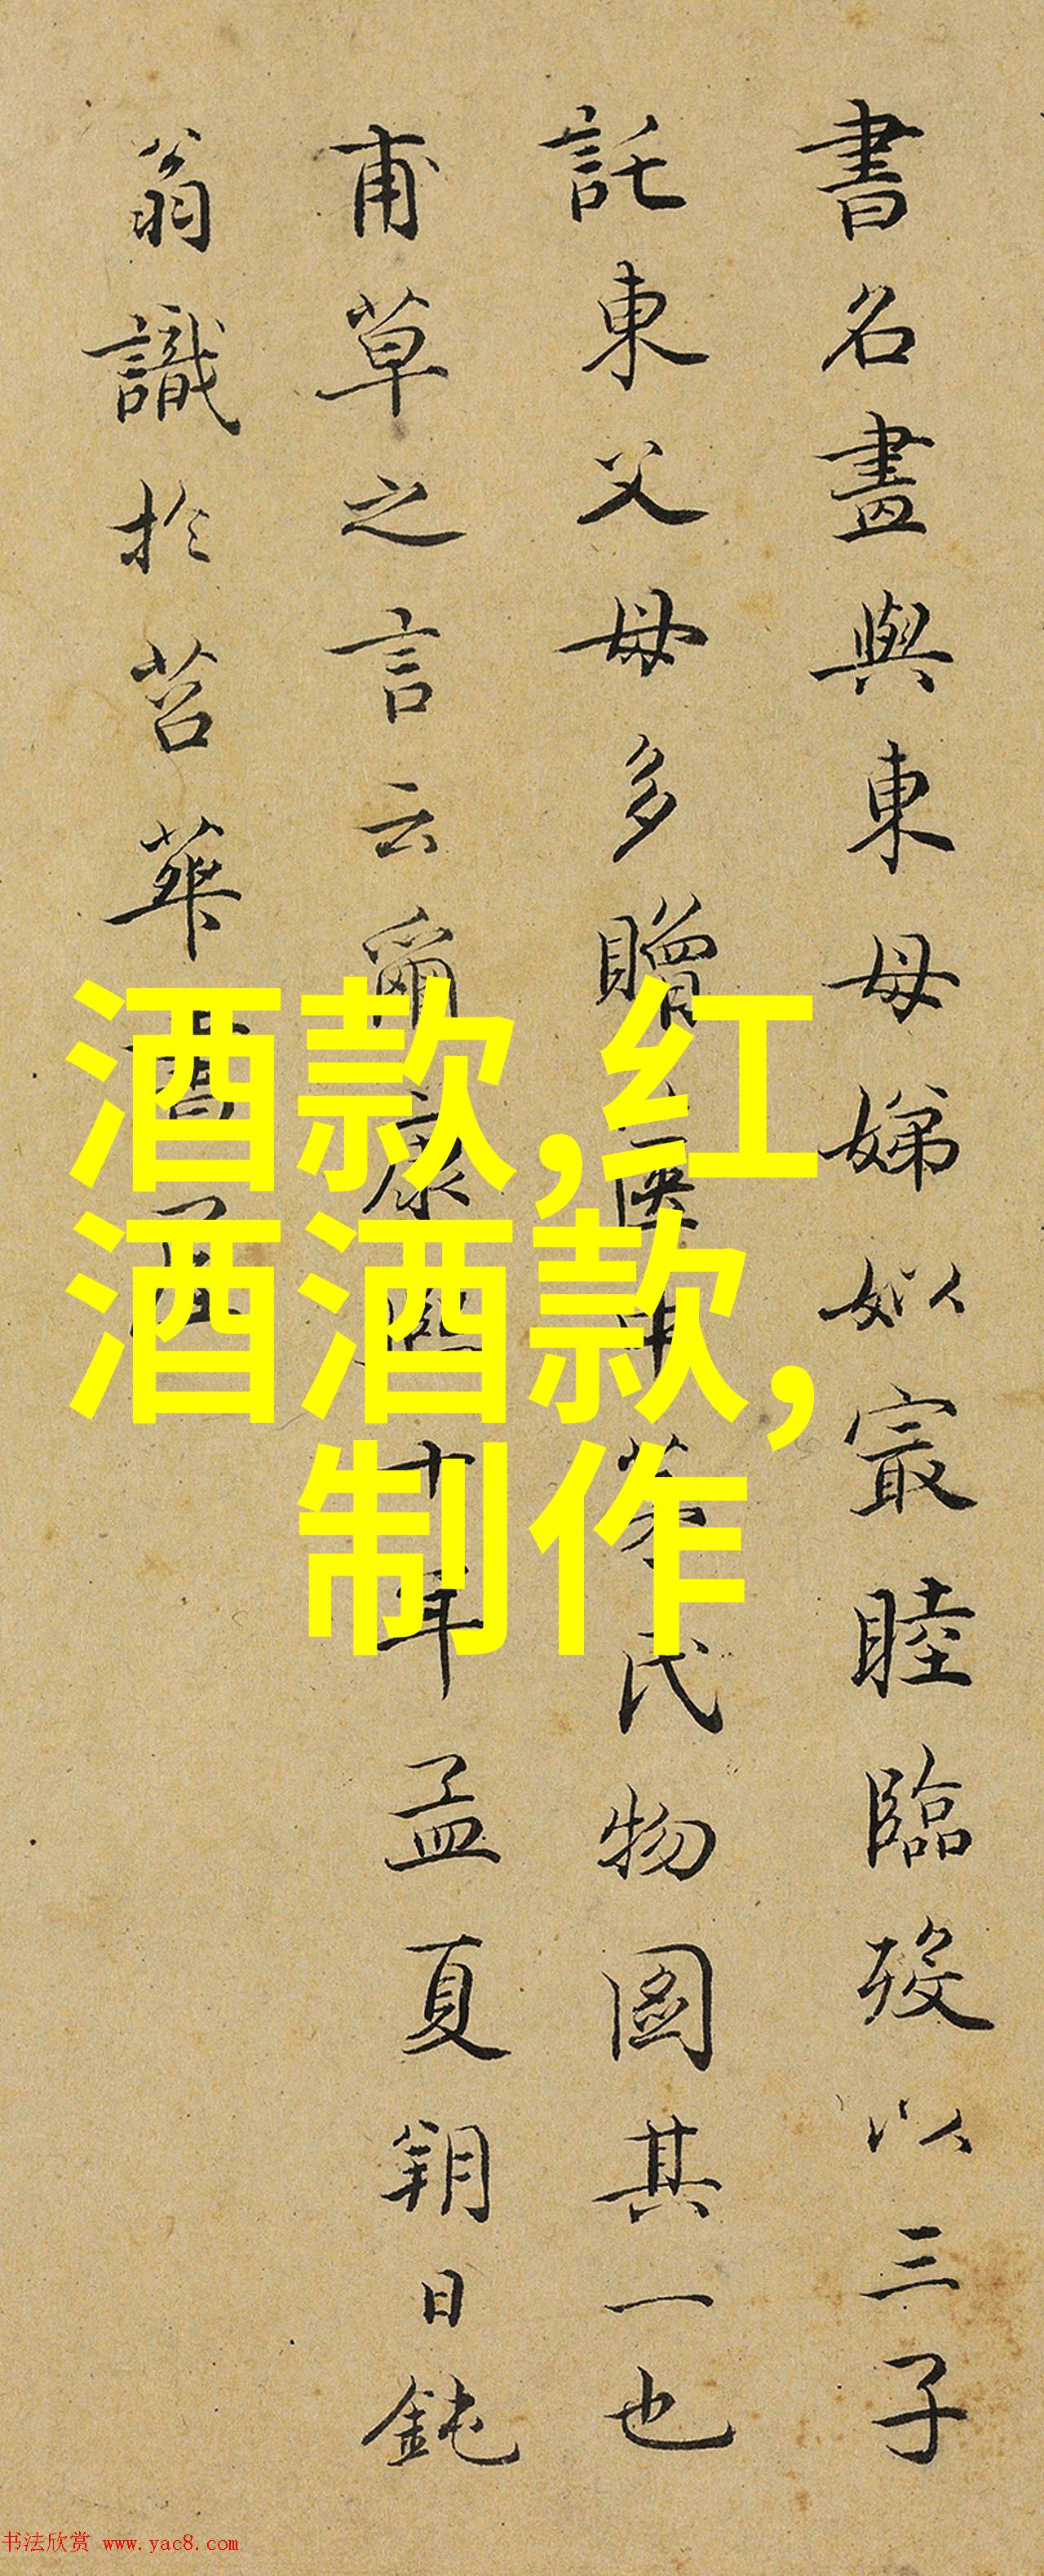 書名畫與東母娣姒㝡睦臨歿以三子
託東父母多贈氏物圖其一也
甫草之言云爾康熙十年孟夏朔日鈍
翁識於苕華書屋
酒款,红
酒酒款,
制作
书法欣赏 www.yac8.com